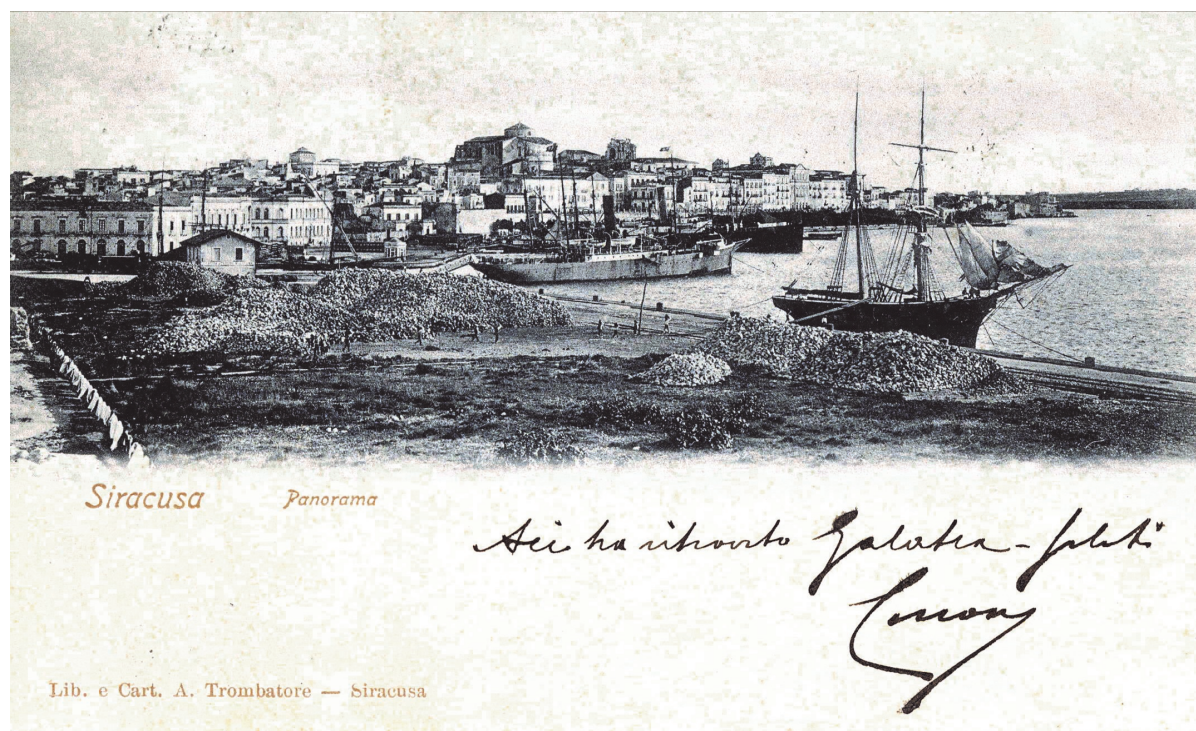 Siracusa Panorama
Aci ha ritrovato Galatea – saluti
Lib. e Cart. A. Trombatore — Siracusa